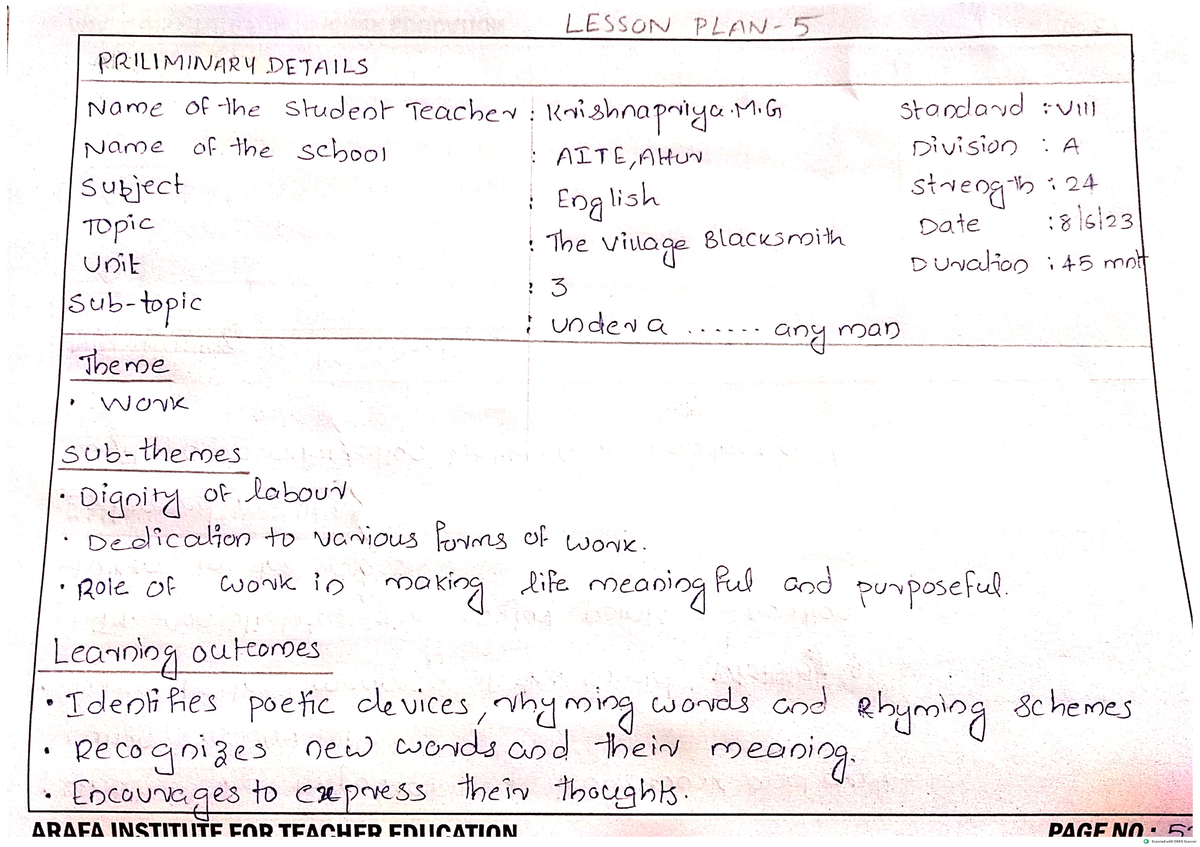 LESSON PLAN-5
PRILIMINARY DETAILS
Name of the Student Teacher : Krishnapriya.M.G Standard : VIII
Name of the school : AITE, Attur Division : A
Subject : English Strength : 24
Topic : The Village Blacksmith Date : 8/6/23
Unit : 3 Duration : 45 mnt
Sub-topic : under a ...... any man
Theme
• Work
Sub-themes
• Dignity of labour
• Dedication to various forms of work.
• Role of work in making life meaningful and purposeful.
Learning outcomes
• Identifies poetic devices, rhyming words and Rhyming Schemes
• Recognizes new words and their meaning.
• Encourages to express their thoughts.
ARAFA INSTITUTE FOR TEACHER EDUCATION PAGE NO :
Scanned with OKEN Scanner